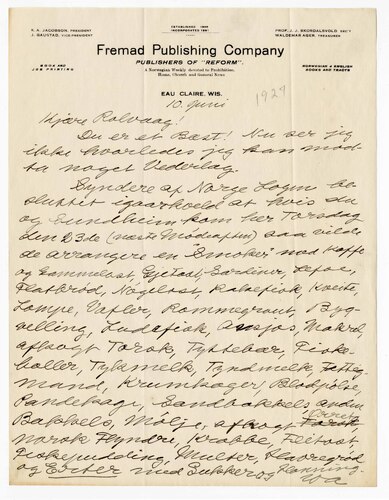 K. A. JACOBSON, PRESIDENT
J. GAUSTAD, VICE-PRESIDENT
ESTABLISHED 1888
INCORPORATED 1891
PROF. J. J. SKORDALSVOLD SEC'Y
WALDEMAR AGER, TREASURER
Fremad Publishing Company
PUBLISHERS OF "REFORM"
A Norwegian Weekly devoted to Prohibition,
Home, Church and General News
BOOK AND
JOB PRINTING
NORWEGIAN & ENGLISH
BOOKS AND TRACTS
EAU CLAIRE, WIS.
10 Juni
1924
Kjære Rolvaag!
Du er en Bæst! Nu ser jeg
ikke hvorledes jeg kan mod-
ta noget Vederlag.
Syndere af Norge Logen be-
sluttet igaarkveld at hvis du
og Sundheim kom her Torsdag
den 23de (næste Mødeaften) saa vilde
de arrangere en "Smoker" med Kaffe
og Gammelost, Gjetost, Sardiner, Lefse,
Flatbrød, Nøgelost, Kalvefisk,
Lompe, Vafler, Rømmegrøt, Byg-
velling, Ludefisk, Ansjos, Makrel,
afkogt Torsk, Tyttebær, Fiske-
boller, Tykmelk, Tyndmelk,
mand, Krumkager Blodpølse,
Pandekage, Sandbakkels, anden
Bakkels, Mølje, afkogt Torsk,
norsk Flyndre, Krabbe,
Fiskepudding, Multer,
og Erter med Sukker og